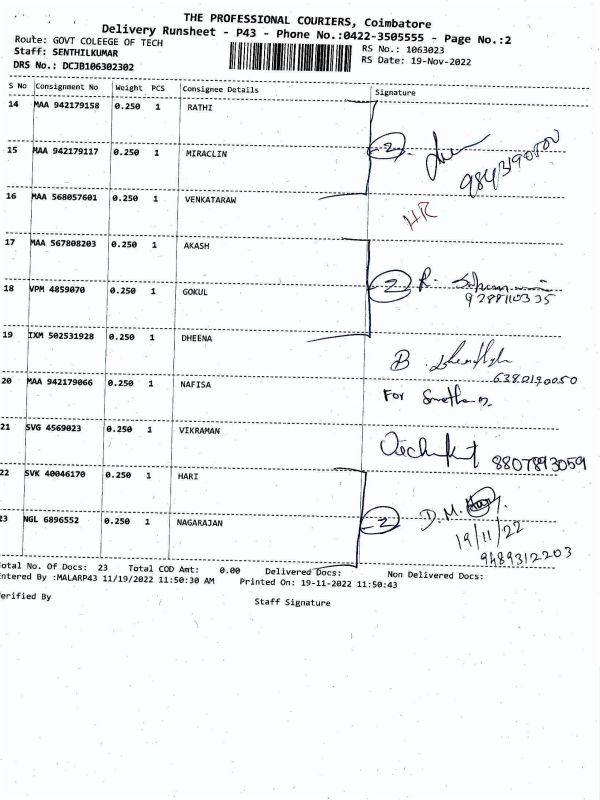 THE PROFESSIONAL COURIERS, Coimbatore
Delivery Runsheet - P43 - Phone No.:0422-3505555 - Page No.:2
Route: GOVT COLEEGE OF TECH
RS No.: 1063023
Staff: SENTHILKUMAR
RS Date: 19-Nov-2022
DRS No.: DCJB106302302
S No Consignment No Weight PCS Consignee Details Signature
14 MAA 942179158 0.250 1 RATHI
15 MAA 942179117 0.250 1 MIRACLIN 2
16 MAA 568057601 0.250 1 VENKATARAW
HR
17 MAA 567808203 0.250 1 AKASH
18 VPM 4859070 0.250 1 GOKUL 2 R.
19 IXM 502531928 0.250 1 DHEENA
B
20 MAA 942179066 0.250 1 NAFISA
For
21 SVG 4569023 0.250 1 VIKRAMAN
8807893059
22 SVK 40046170 0.250 1 HARI
D.M.
23 NGL 6896552 0.250 1 NAGARAJAN 2
19/11/22
9489312203
otal No. Of Docs: 23 Total COD Amt: 0.00 Delivered Docs: Non Delivered Docs:
ntered By :MALARP43 11/19/2022 11:50:30 AM Printed On: 19-11-2022 11:50:43
erified By
Staff Signature